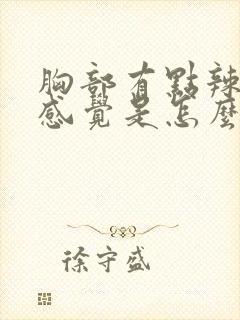 胸部有點辣
感覺是怎麼
徐守盛